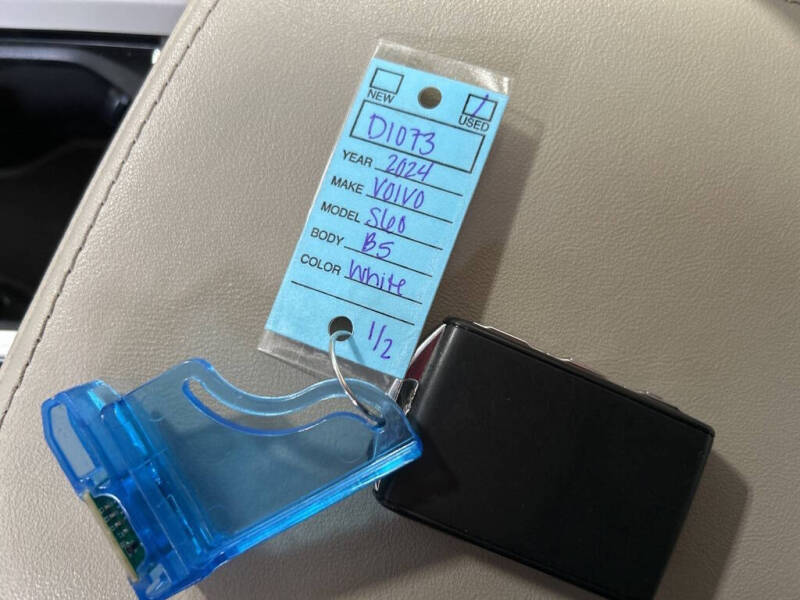 NEW
USED
D1073
YEAR 2024
MAKE VOIVO
MODEL S60
BODY B5
COLOR White
1/2